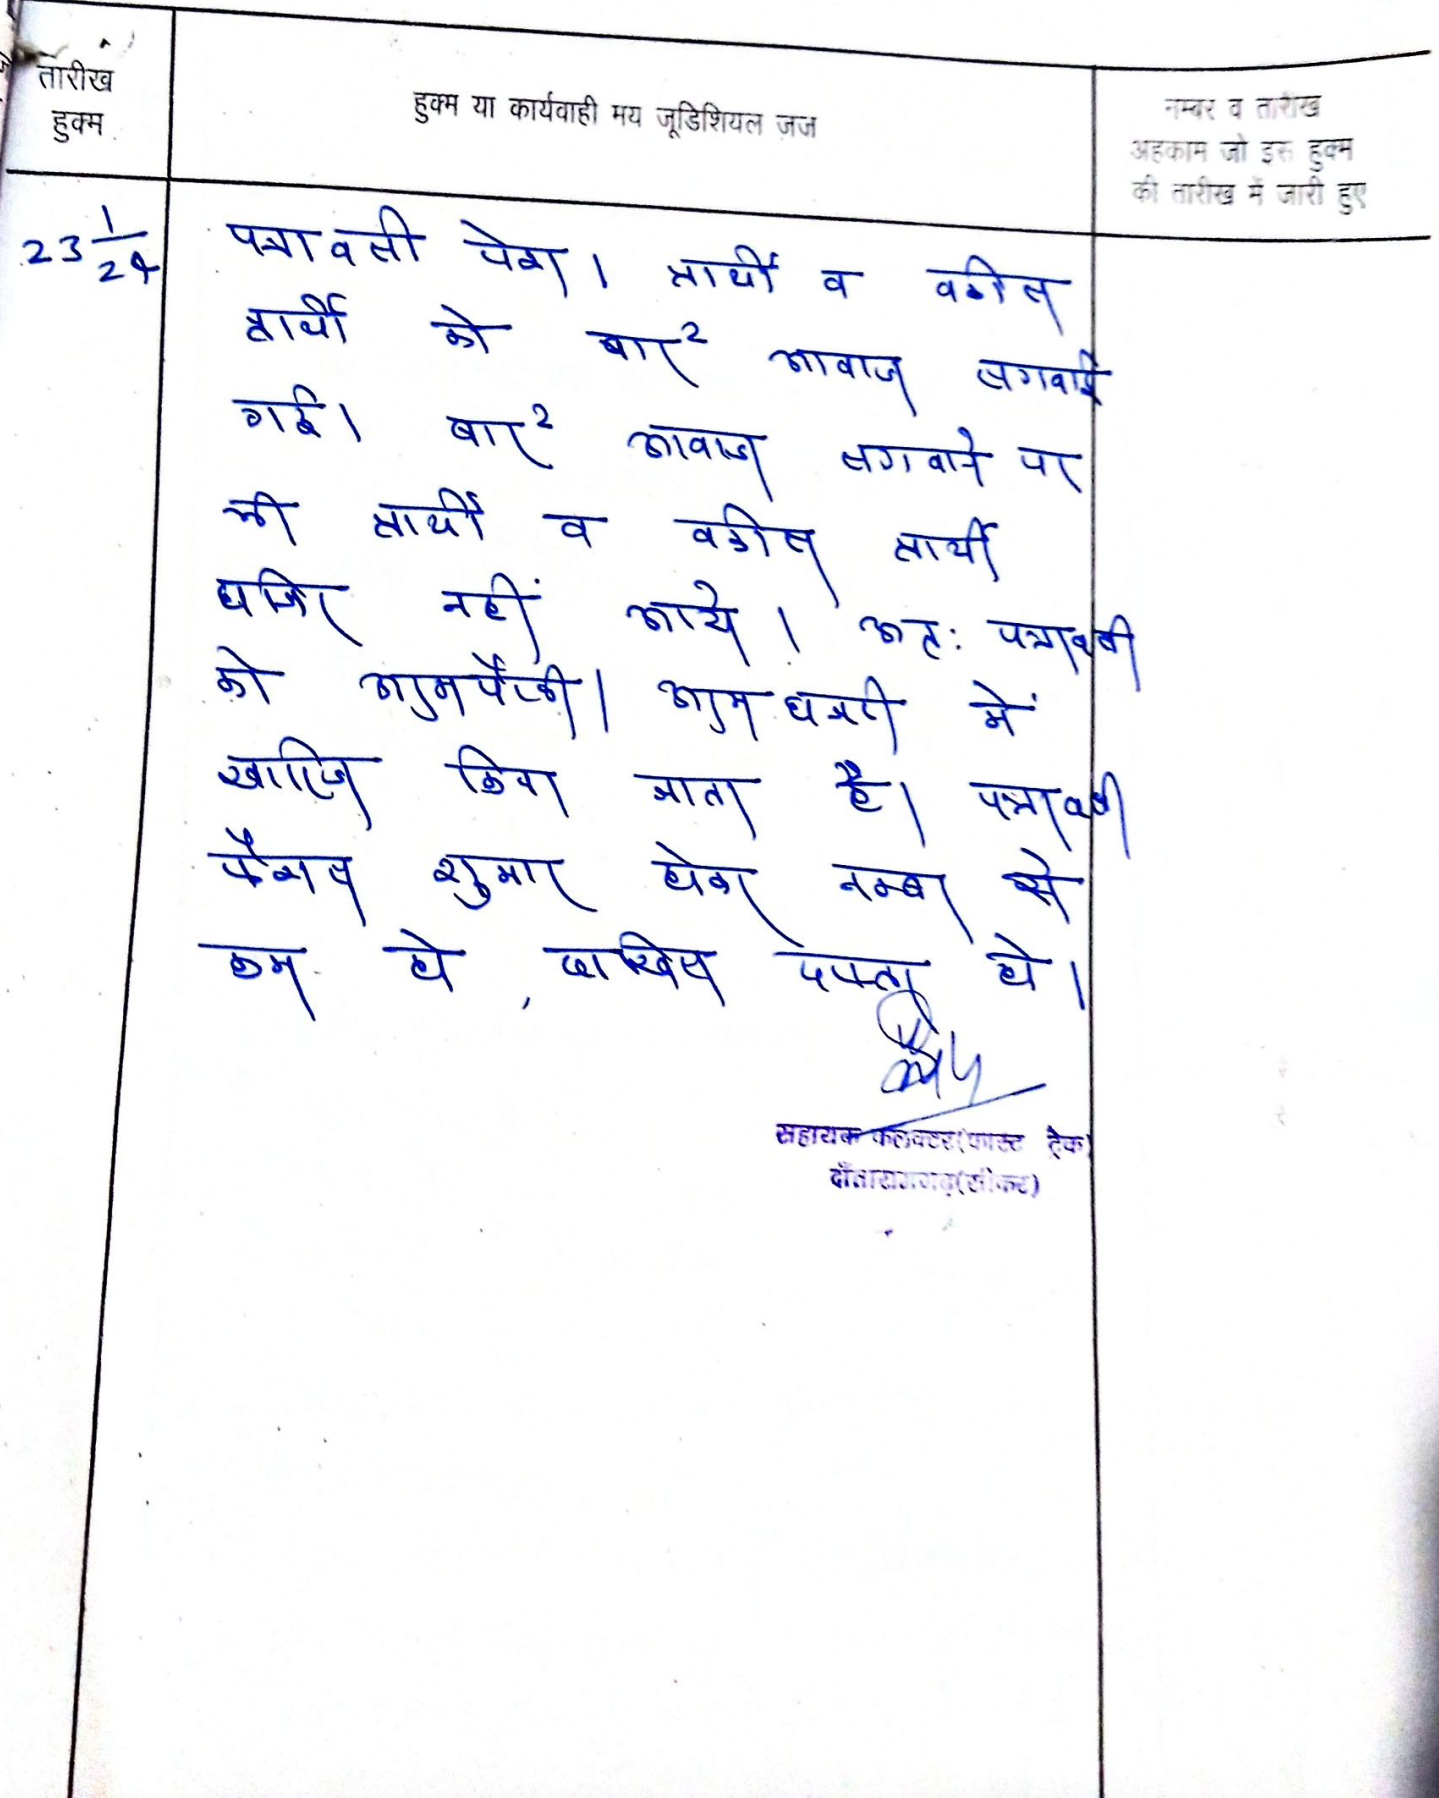 तारीख
हुक्म
हुक्म या कार्यवाही मय जूडिशियल जज
नम्बर व तारीख
अहकाम जो इस हुक्म
की तारीख में जारी हुए
23 1/24
पत्रावली पेश। प्रार्थी व वकील
प्रार्थी को बार2 आवाज लगवाई
गई। बार2 आवाज लगवाने पर
भी प्रार्थी व वकील प्रार्थी
हाजिर नहीं आये। अतः पत्रावली
को अदमपैरवी। अदम हाजरी में
खारिज किया जाता है। पत्रावली
फैसल शुमार होकर नम्बर से
कम हो, दाखिल दफ्तर हो।
सहायक कलक्टर(फास्ट ट्रेक)
दाँतारामगढ़(सीकर)